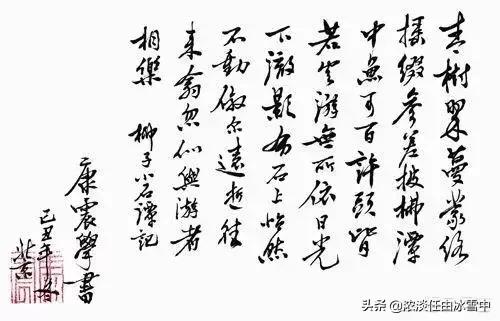 青樹翠蔓蒙絡
搖綴參差披拂潭
中魚可百許頭皆
若空游無所依日光
下澈影布石上怡然
不動俶尔遠逝往
來翕忽似與游者
相樂 柳子小石潭記
康震學書
己丑年 北京
头条 @浓淡任由冰雪中